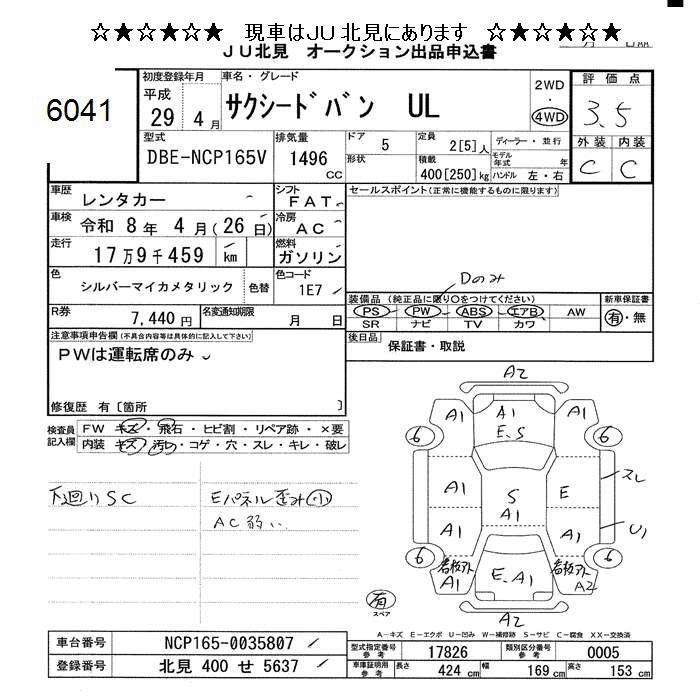 ☆★☆★☆★☆ 現車はJU北見にあります ☆★☆★☆★☆
JU北見 オークション出品申込書
6041
初度登録年月 平成 29 4 月
車名・グレード サクシードバン UL
2WD ・ 4WD
評価点 3.5
外装 内装
C C
型式 DBE-NCP165V
排気量 1496 CC
ドア 5 形状
定員 2[5]人
積載 400[250]kg
ディーラー・並行
モデル年式 年
ハンドル 左・右
車歴 レンタカー
シフト FAT
車検 令和 8 年 4 月(26 日)
冷房 AC
走行 17万9千459 km
燃料 ガソリン
色 シルバーマイカメタリック 色替
色コード 1E7
R券 7,440 円
名変通知期限 月 日
セールスポイント(正常に機能するものに限ります)
Dのみ
装備品 (純正品に限り○をつけてください)
PS PW ABS エアB AW
SR ナビ TV カワ
新車保証書 有・無
後日品 保証書・取説
注意事項申告欄(不具合内容等は具体的に記入して下さい)
PWは運転席のみ
修復歴 有〔箇所 〕
検査員記入欄
FW キズ・飛石・ヒビ割・リペア跡・×要
内装 キズ・汚レ・コゲ・穴・スレ・キレ・破レ
下廻りSC
Eパネル歪み小
AC弱い
A2
A1 A1 A1
E、S
6 6
A1 S E スレ
A1
A1 A1 U1
6 6
看板アト A1
E、A1
看板アト A2
A2
有 スペア
A-キズ E-エクボ U-凹み W-補修跡 S-サビ C-腐食 XX-交換済
車台番号 NCP165-0035807
登録番号 北見 400 せ 5637
型式指定番号 参考 17826
類別区分番号 参考 0005
車庫証明用 参考 長さ 424 cm 幅 169 cm 高さ 153 cm